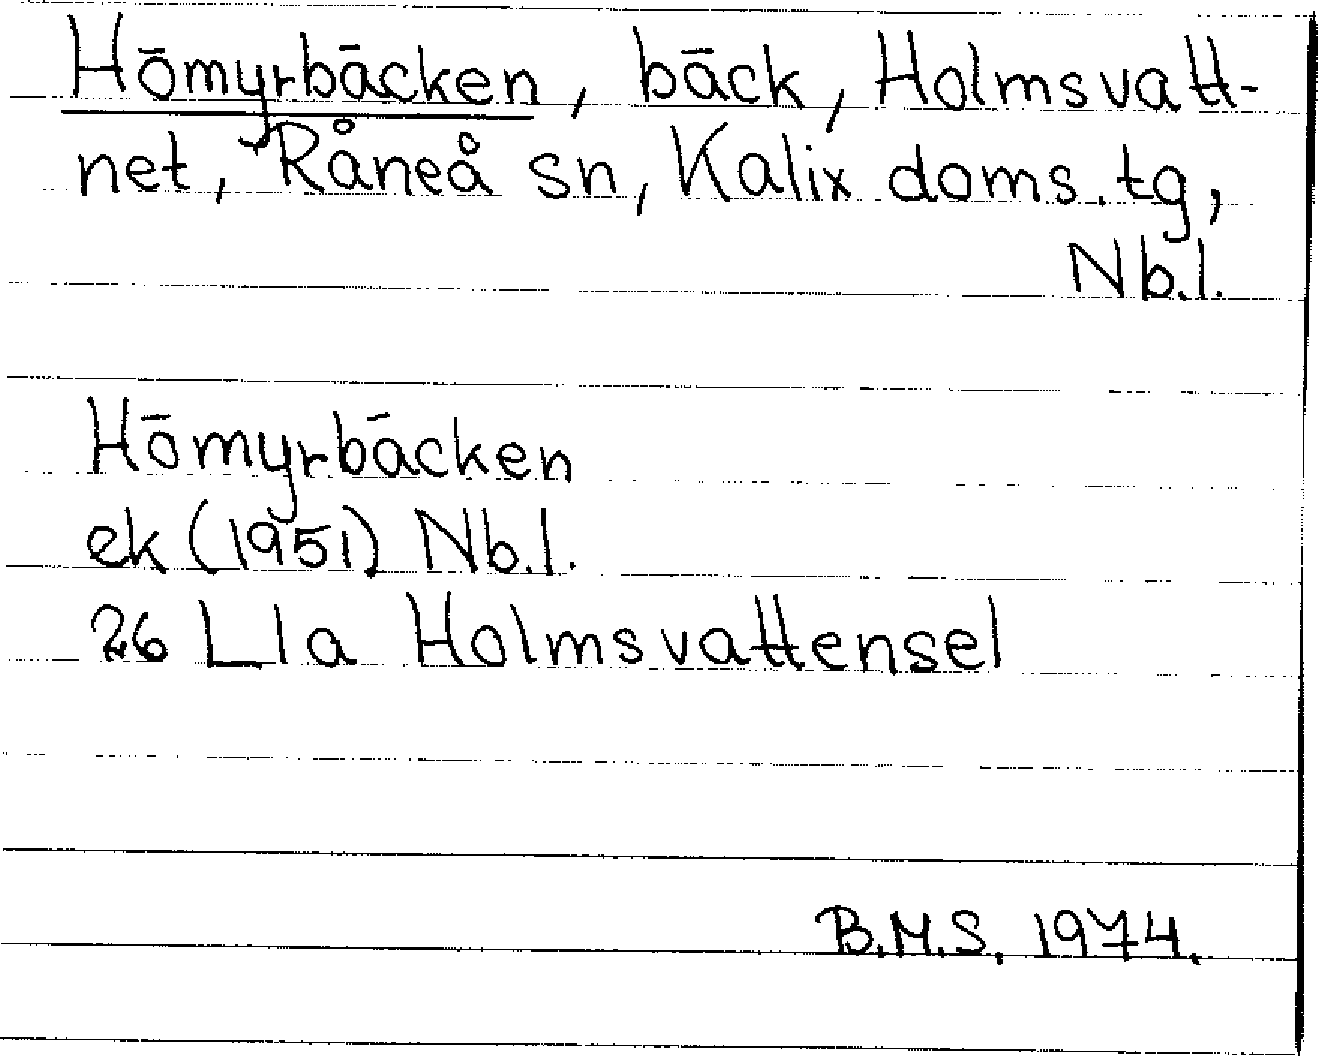 Hömyrbäcken, bäck, Holmsvatt-
net, Råneå sn, Kalix doms.tg,
Nb.l.
Hömyrbäcken
ek (1951) Nb.l.
26 L1a Holmsvattensel
B.M.S. 1974.